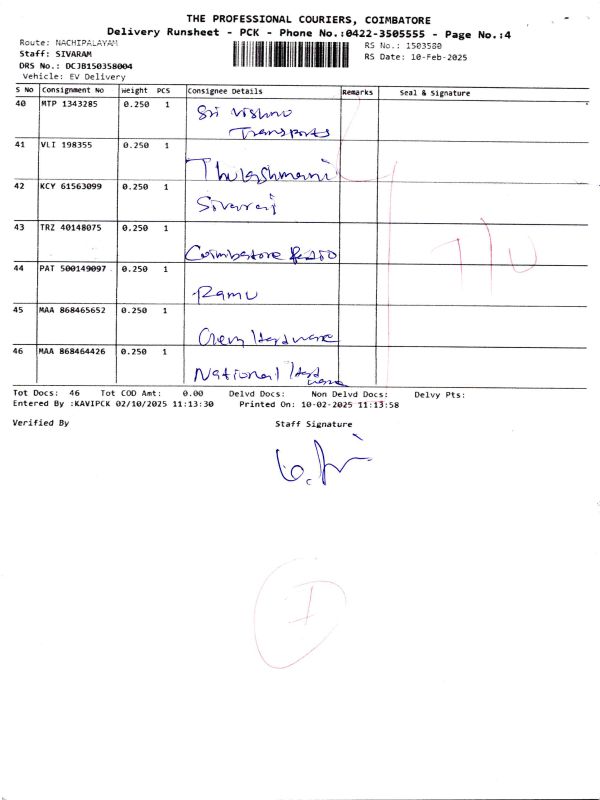 THE PROFESSIONAL COURIERS, COIMBATORE
Delivery Runsheet - PCK - Phone No.:0422-3505555 - Page No.:4
Route: NACHIPALAYAM
RS No.: 1503580
Staff: SIVARAM
RS Date: 10-Feb-2025
DRS No.: DCJB150358004
Vehicle: EV Delivery
S No Consignment No Weight PCS Consignee Details Remarks Seal & Signature
40 MTP 1343285 0.250 1 Sri Vishnu
Transports
41 VLI 198355 0.250 1 Thulashmani
42 KCY 61563099 0.250 1 Sivaraj
43 TRZ 40148075 0.250 1 Coimbatore
44 PAT 500149097 0.250 1 Ramu
45 MAA 868465652 0.250 1 Hardware
46 MAA 868464426 0.250 1 National Hard
ware
Tot Docs: 46 Tot COD Amt: 0.00 Delvd Docs: Non Delvd Docs: Delvy Pts:
Entered By :KAVIPCK 02/10/2025 11:13:30 Printed On: 10-02-2025 11:13:58
Verified By Staff Signature